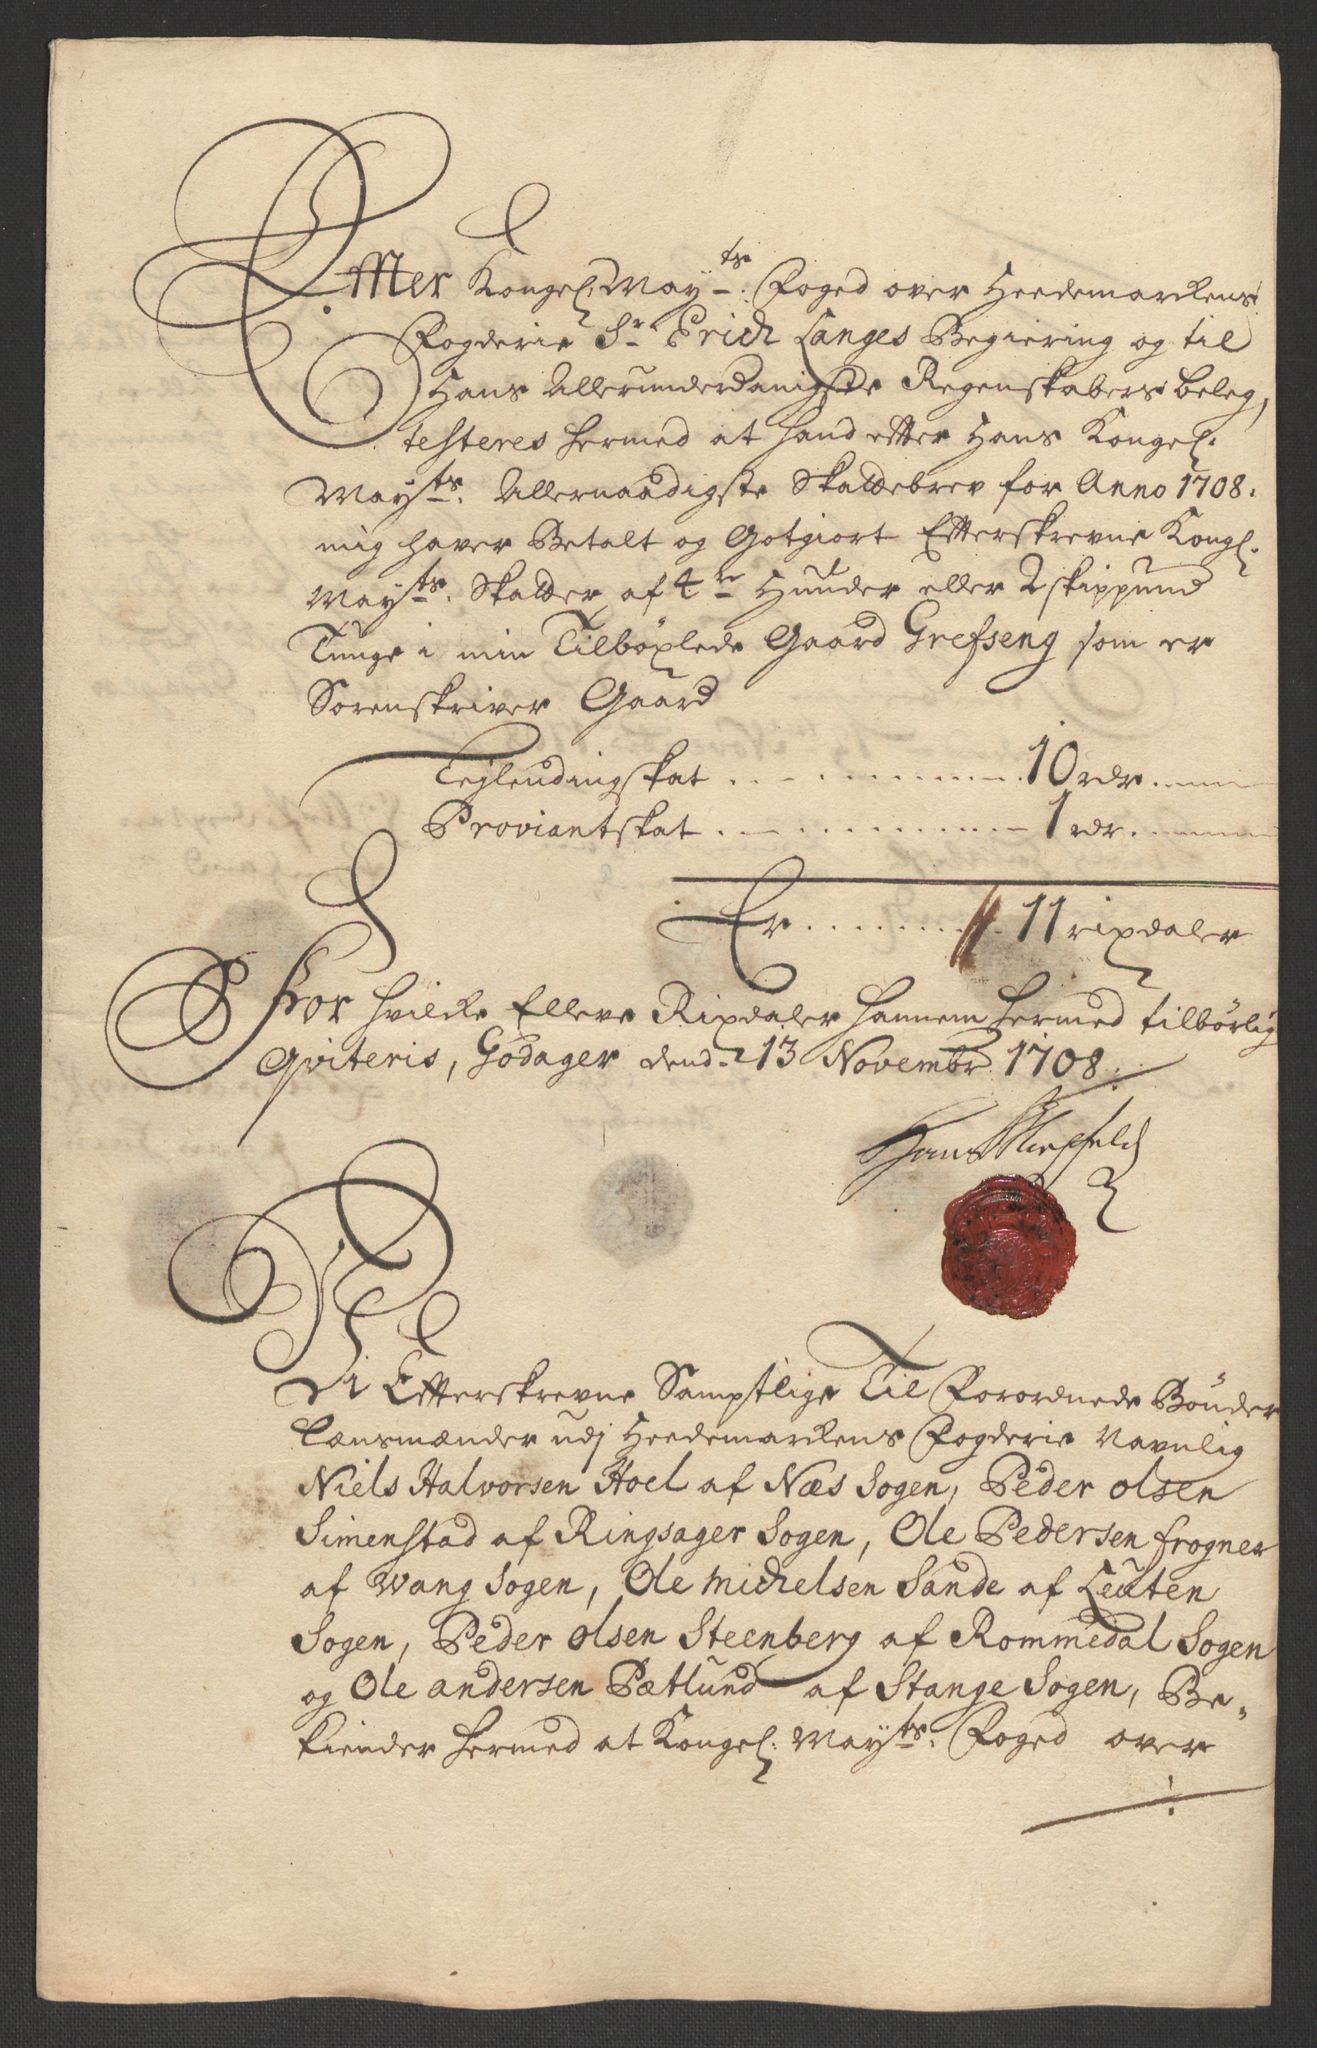 Efter Kongel: Mayts: Foged over Heedemarckens
Fogderie Sr Erich Langes Begiering og til
Hans Allerunderdanigste Regenskabers beleg,
testeres hermed at hand efter Hans Kongel:
Mayts: Allernaadigste Skattebrev for Anno 1708.
mig haver Betalt og Gotgiort Efterskrevne Kongl:
Mayts: Skatter af 4re Huuder eller 2 skippund
Tunge i min Tilböxlede Gaard Grefseng som er
Sorenskriver Gaard
Lejlendingskat . . . . . . 10 rdr.
Proviantskat . . . . . . 1 rdr.
Er . . . . . . 11 rixdaler
For hvilcke Elleve Rixdaler hannem hermed tilbörlig
Qviteris, Godager dend. 13 Novembr. 1708.
Hans
Vi Efterskrevne Samptlige Til Forordnede Bönder
Lænsmænder udj Heedemarckens Fogderie Navnlig
Niels Halvorsen Hoel af Næs Sogen, Peder Olsen
Simenstad af Ringsager Sogen, Ole Pedersen frogner
af Wang Sogen, Ole Michelsen Sande af Leuten
Sogen, Peder Olsen Steenberg af Rommedal Sogen
og Ole andersen Pætlund af Stange Sogen, Be-
kiender hermed at Kongel: Mayts: Foged over